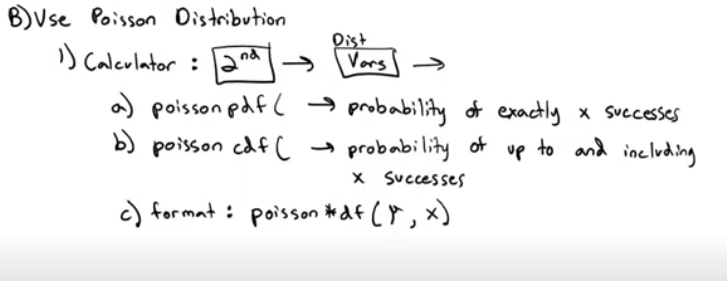 B) Use Poisson Distribution
Dist
1) Calculator : 2nd → Vars →
a) poissonpdf( → probability of exactly x successes
b) poisson cdf( → probability of up to and including
x successes
c) format : poisson*df(μ, x)